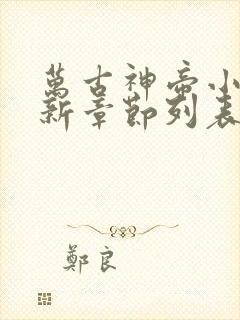 萬古神帝小
新章節列表
鄭良